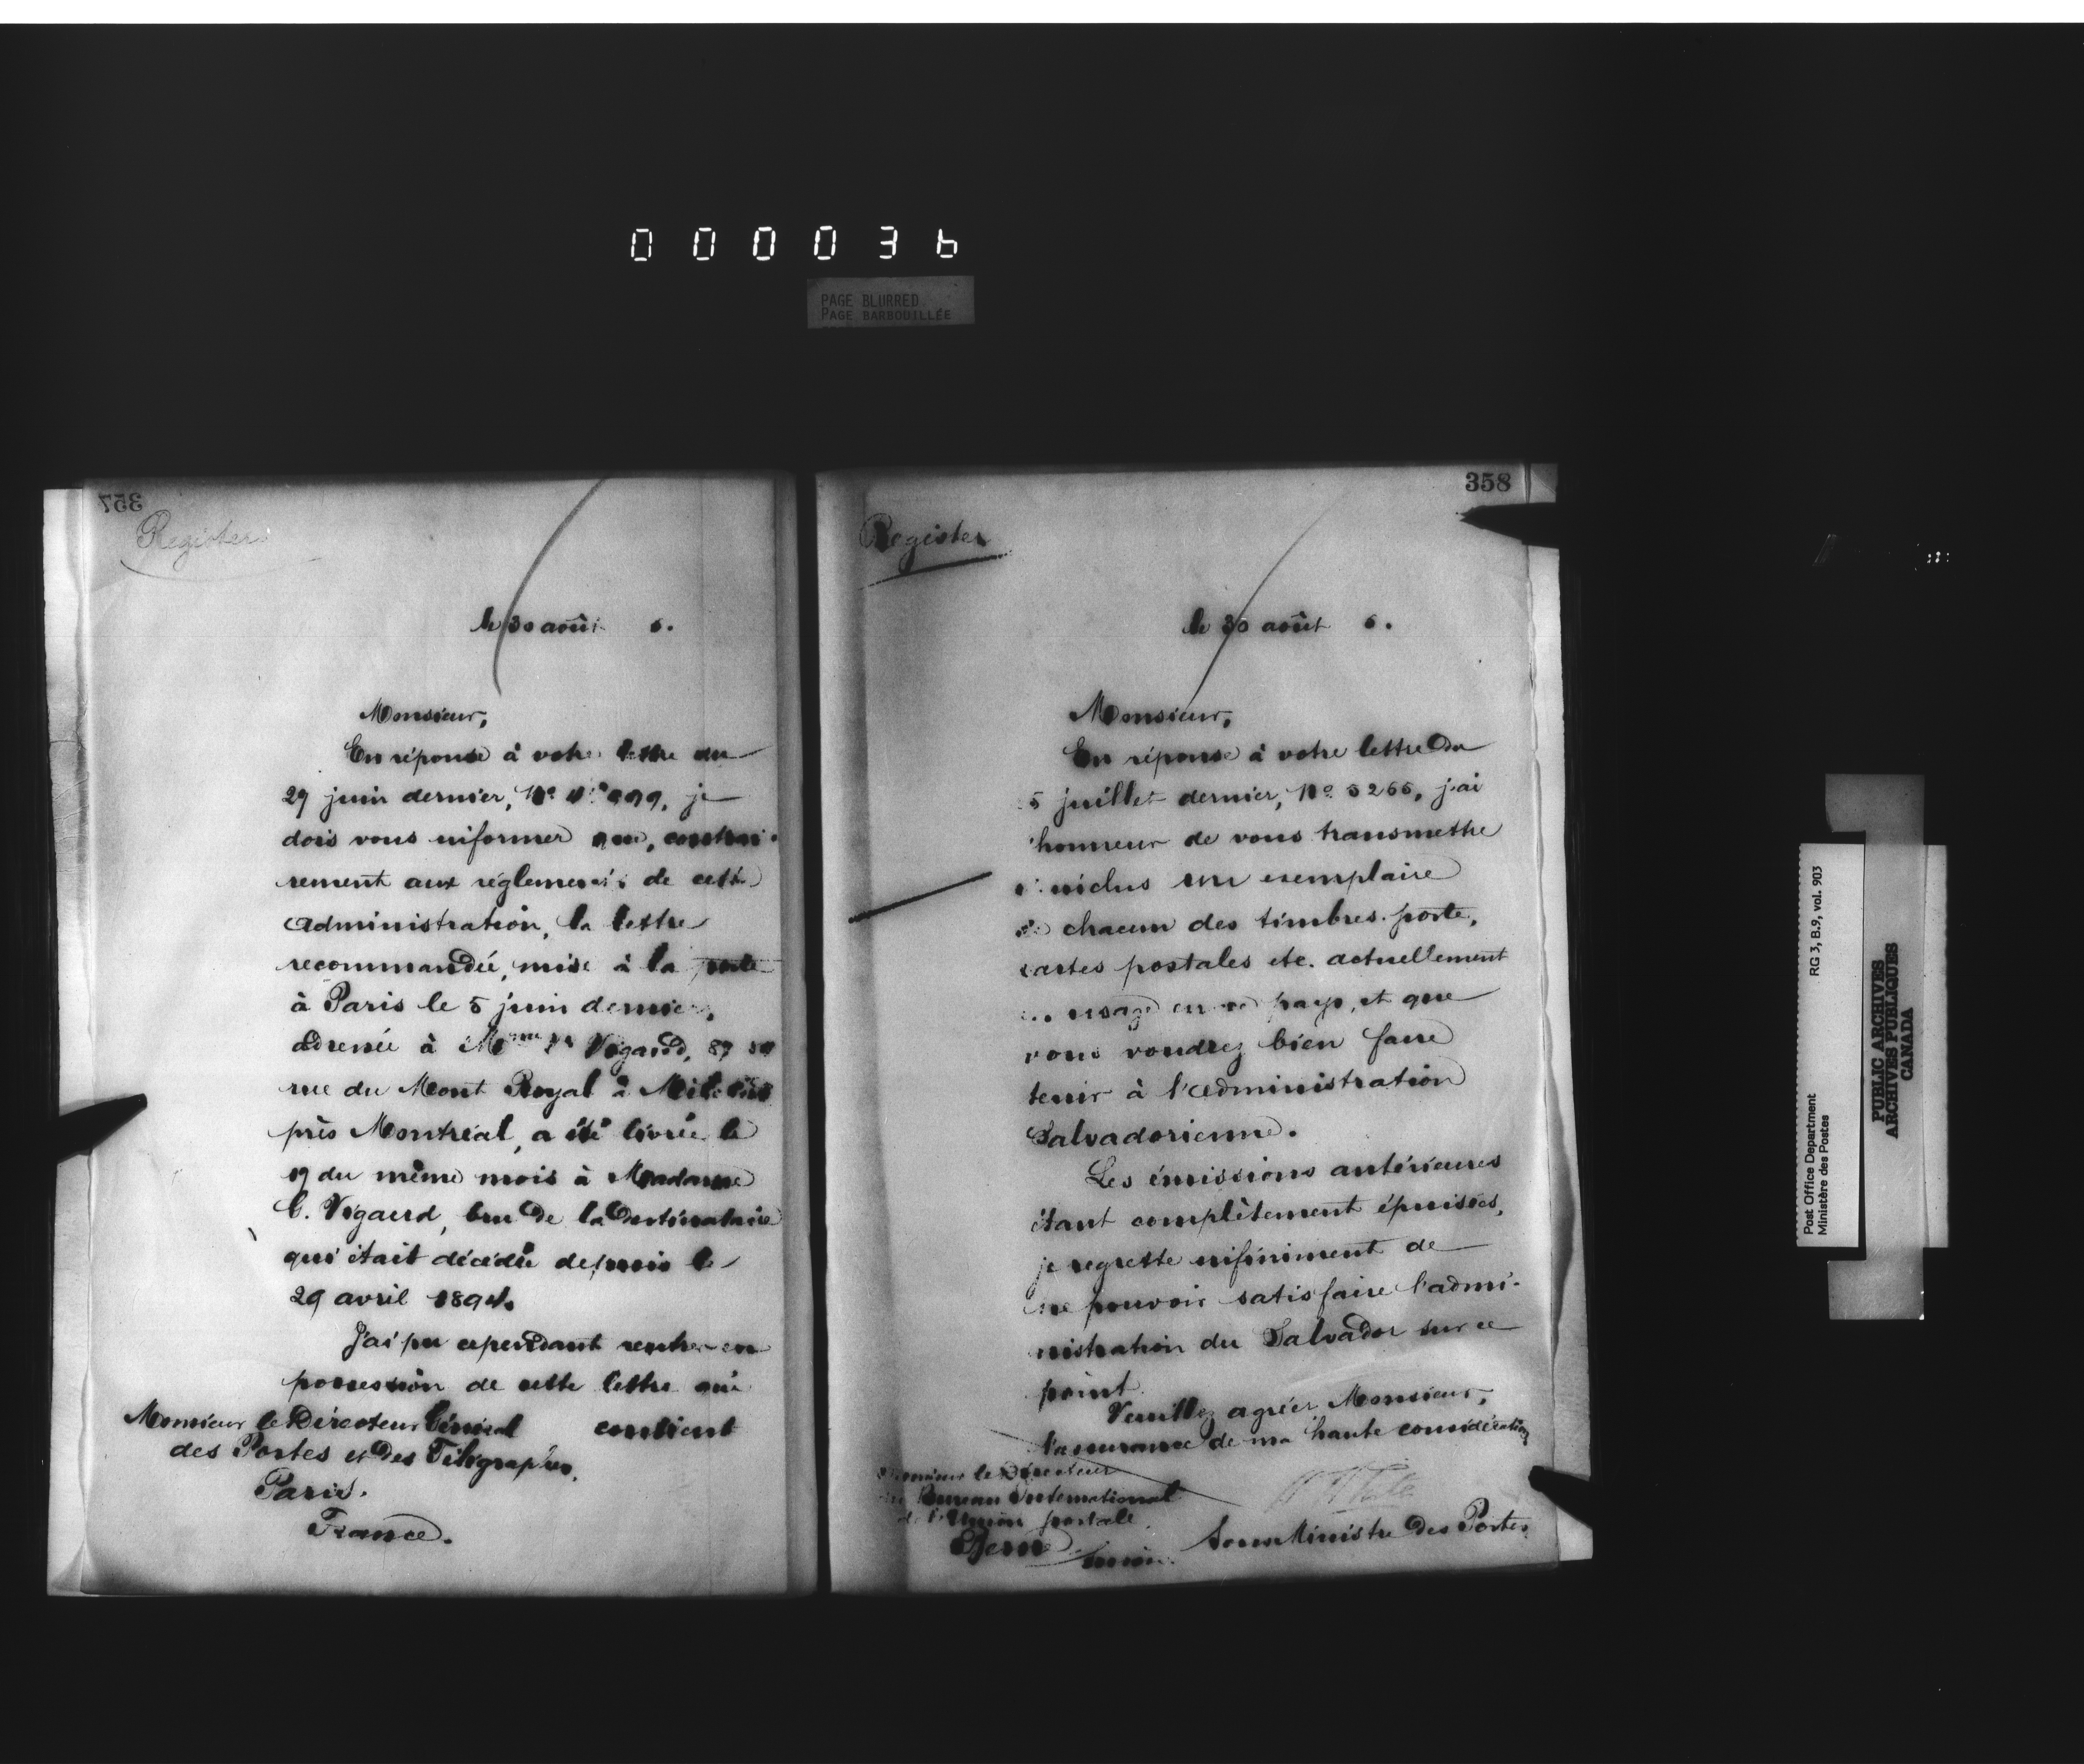 000036
PAGE BLURRED
PAGE BARBODILLÉE
357
Register
le 30 août 6.
Monsieur,
En réponse à votre lettre du
29 juin dernier, No je
dois vous informer que, contrai-
rement aux réglements de cette
administration, la lettre
recommandée, mise à la poste
à Paris le 5 juin dernier,
adressée à Mme Vve Vigaud, 87
rue du Mont Royal à Mile End
près Montréal, a été livrée le
19 du même mois à Madame
C. Vigaud, bru de la destinataire
qui était décédée depuis le
29 avril 1894.
J'ai pu cependant rentrer en
possession de cette lettre qui
contient
Monsieur le Directeur Général
des Postes et des Télégraphes,
Paris.
France.
358
Register
le 30 août 6.
Monsieur,
En réponse à votre lettre du
5 juillet dernier, No 3265, j'ai
l'honneur de vous transmettre
ci-inclus un exemplaire
de chacun des timbres-poste,
cartes postales etc. actuellement
en usage en ce pays, et que
vous voudrez bien faire
tenir à l'administration
Salvadorienne.
Les émissions antérieures
étant complètement épuisées,
je regrette infiniment de
ne pouvoir satisfaire l'admi-
nistration du Salvador sur ce
point.
Veuillez agréer Monsieur,
l'assurance de ma haute considération
Monsieur le Directeur
du Bureau International
de l'Union postale
Berne
Suisse.
Sous Ministre des Postes
RG 3, B.9, vol. 903
Post Office Department
Ministère des Postes
PUBLIC ARCHIVES
ARCHIVES PUBLIQUES
CANADA